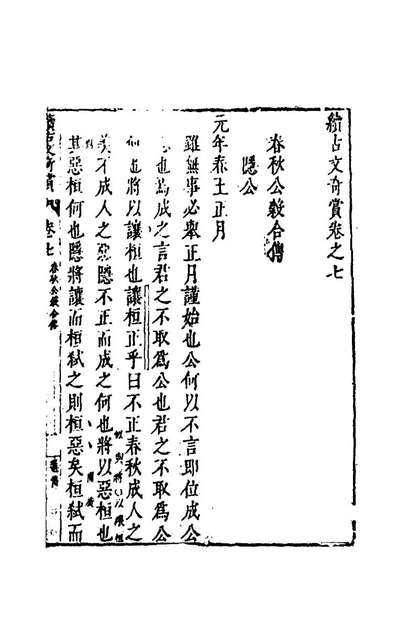 續古文奇賞卷之七
春秋公穀合傳
隱公
元年春王正月
雖無事必舉正月謹始也公何以不言即位成公
志也焉成之言君之不取爲公也君之不取爲公
何也將以讓桓也讓桓正乎曰不正春秋成人之
美不成人之惡隱不正而成之何也將以惡桓也
其惡桓何也隱將讓而桓弒之則桓惡矣桓弒而
卷七
春秋公穀合傳